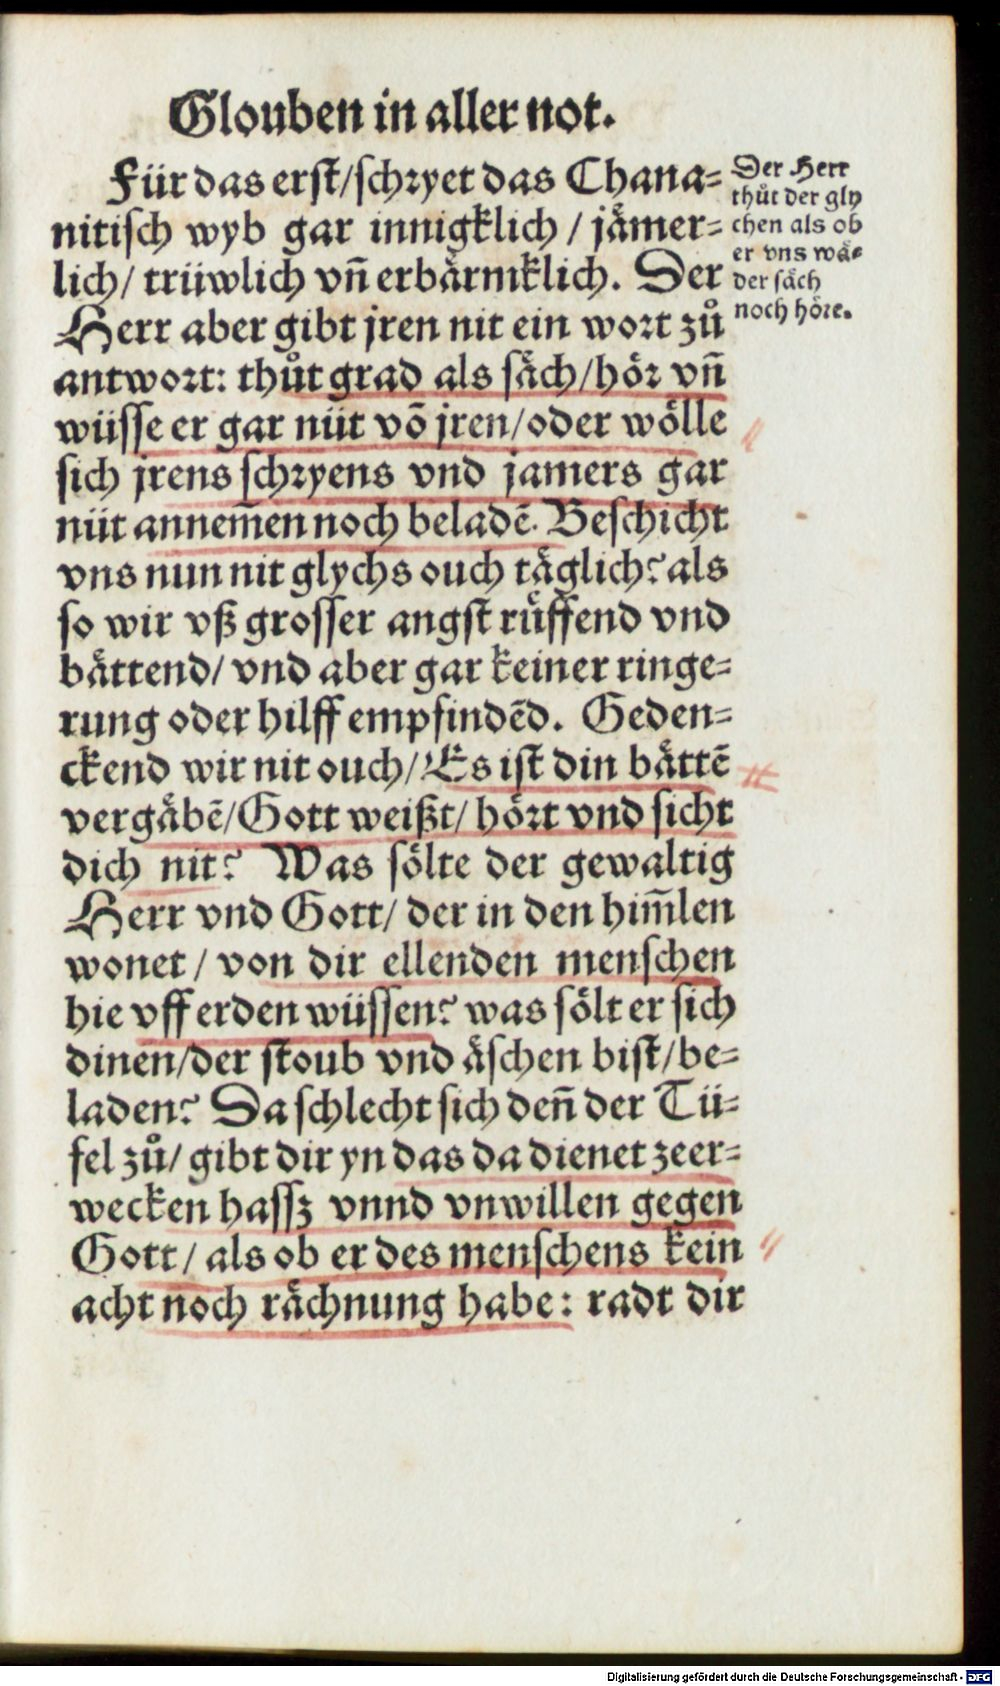 Glouben in aller not.
Für das erst/schryet das Chana=
nitisch wyb gar innigklich / jaͤmer=
lich/ trüwlich vñ erbaͤrmklich. Der
Herr aber gibt jren nit ein wort zů
antwort: thůt grad als saͤch/hoͤr vñ
wüsse er gar nüt vō jren/oder woͤlle
sich jrens schryens vnd jamers gar
nüt annem̄en noch beladē. Beschicht
vns nun nit glychs ouch taͤglich? als
so wir vß grosser angst ruͤffend vnd
baͤttend/ vnd aber gar keiner ringe=
rung oder hilff empfindēd. Geden=
ckend wir nit ouch/ Es ist din baͤttē
vergaͤbē/Gott weißt/ hoͤrt vnd sicht
dich nit? Was soͤlte der gewaltig
Herr vnd Gott/ der in den him̄len
wonet / von dir ellenden menschen
hie vff erden wüssen? was soͤlt er sich
dinen/der stoub vnd aͤschen bist/be=
laden? Da schlecht sich deñ der Tü=
fel zů/ gibt dir yn das da dienet zeer=
wecken hassz vnnd vnwillen gegen
Gott/ als ob er des menschens kein
acht noch raͤchnung habe: radt dir
Der Herr
thůt der gly
chen als ob
er vns waͤ=
der saͤch
noch hoͤre.
Digitalisierung gefördert durch die Deutsche Forschungsgemeinschaft - DFG